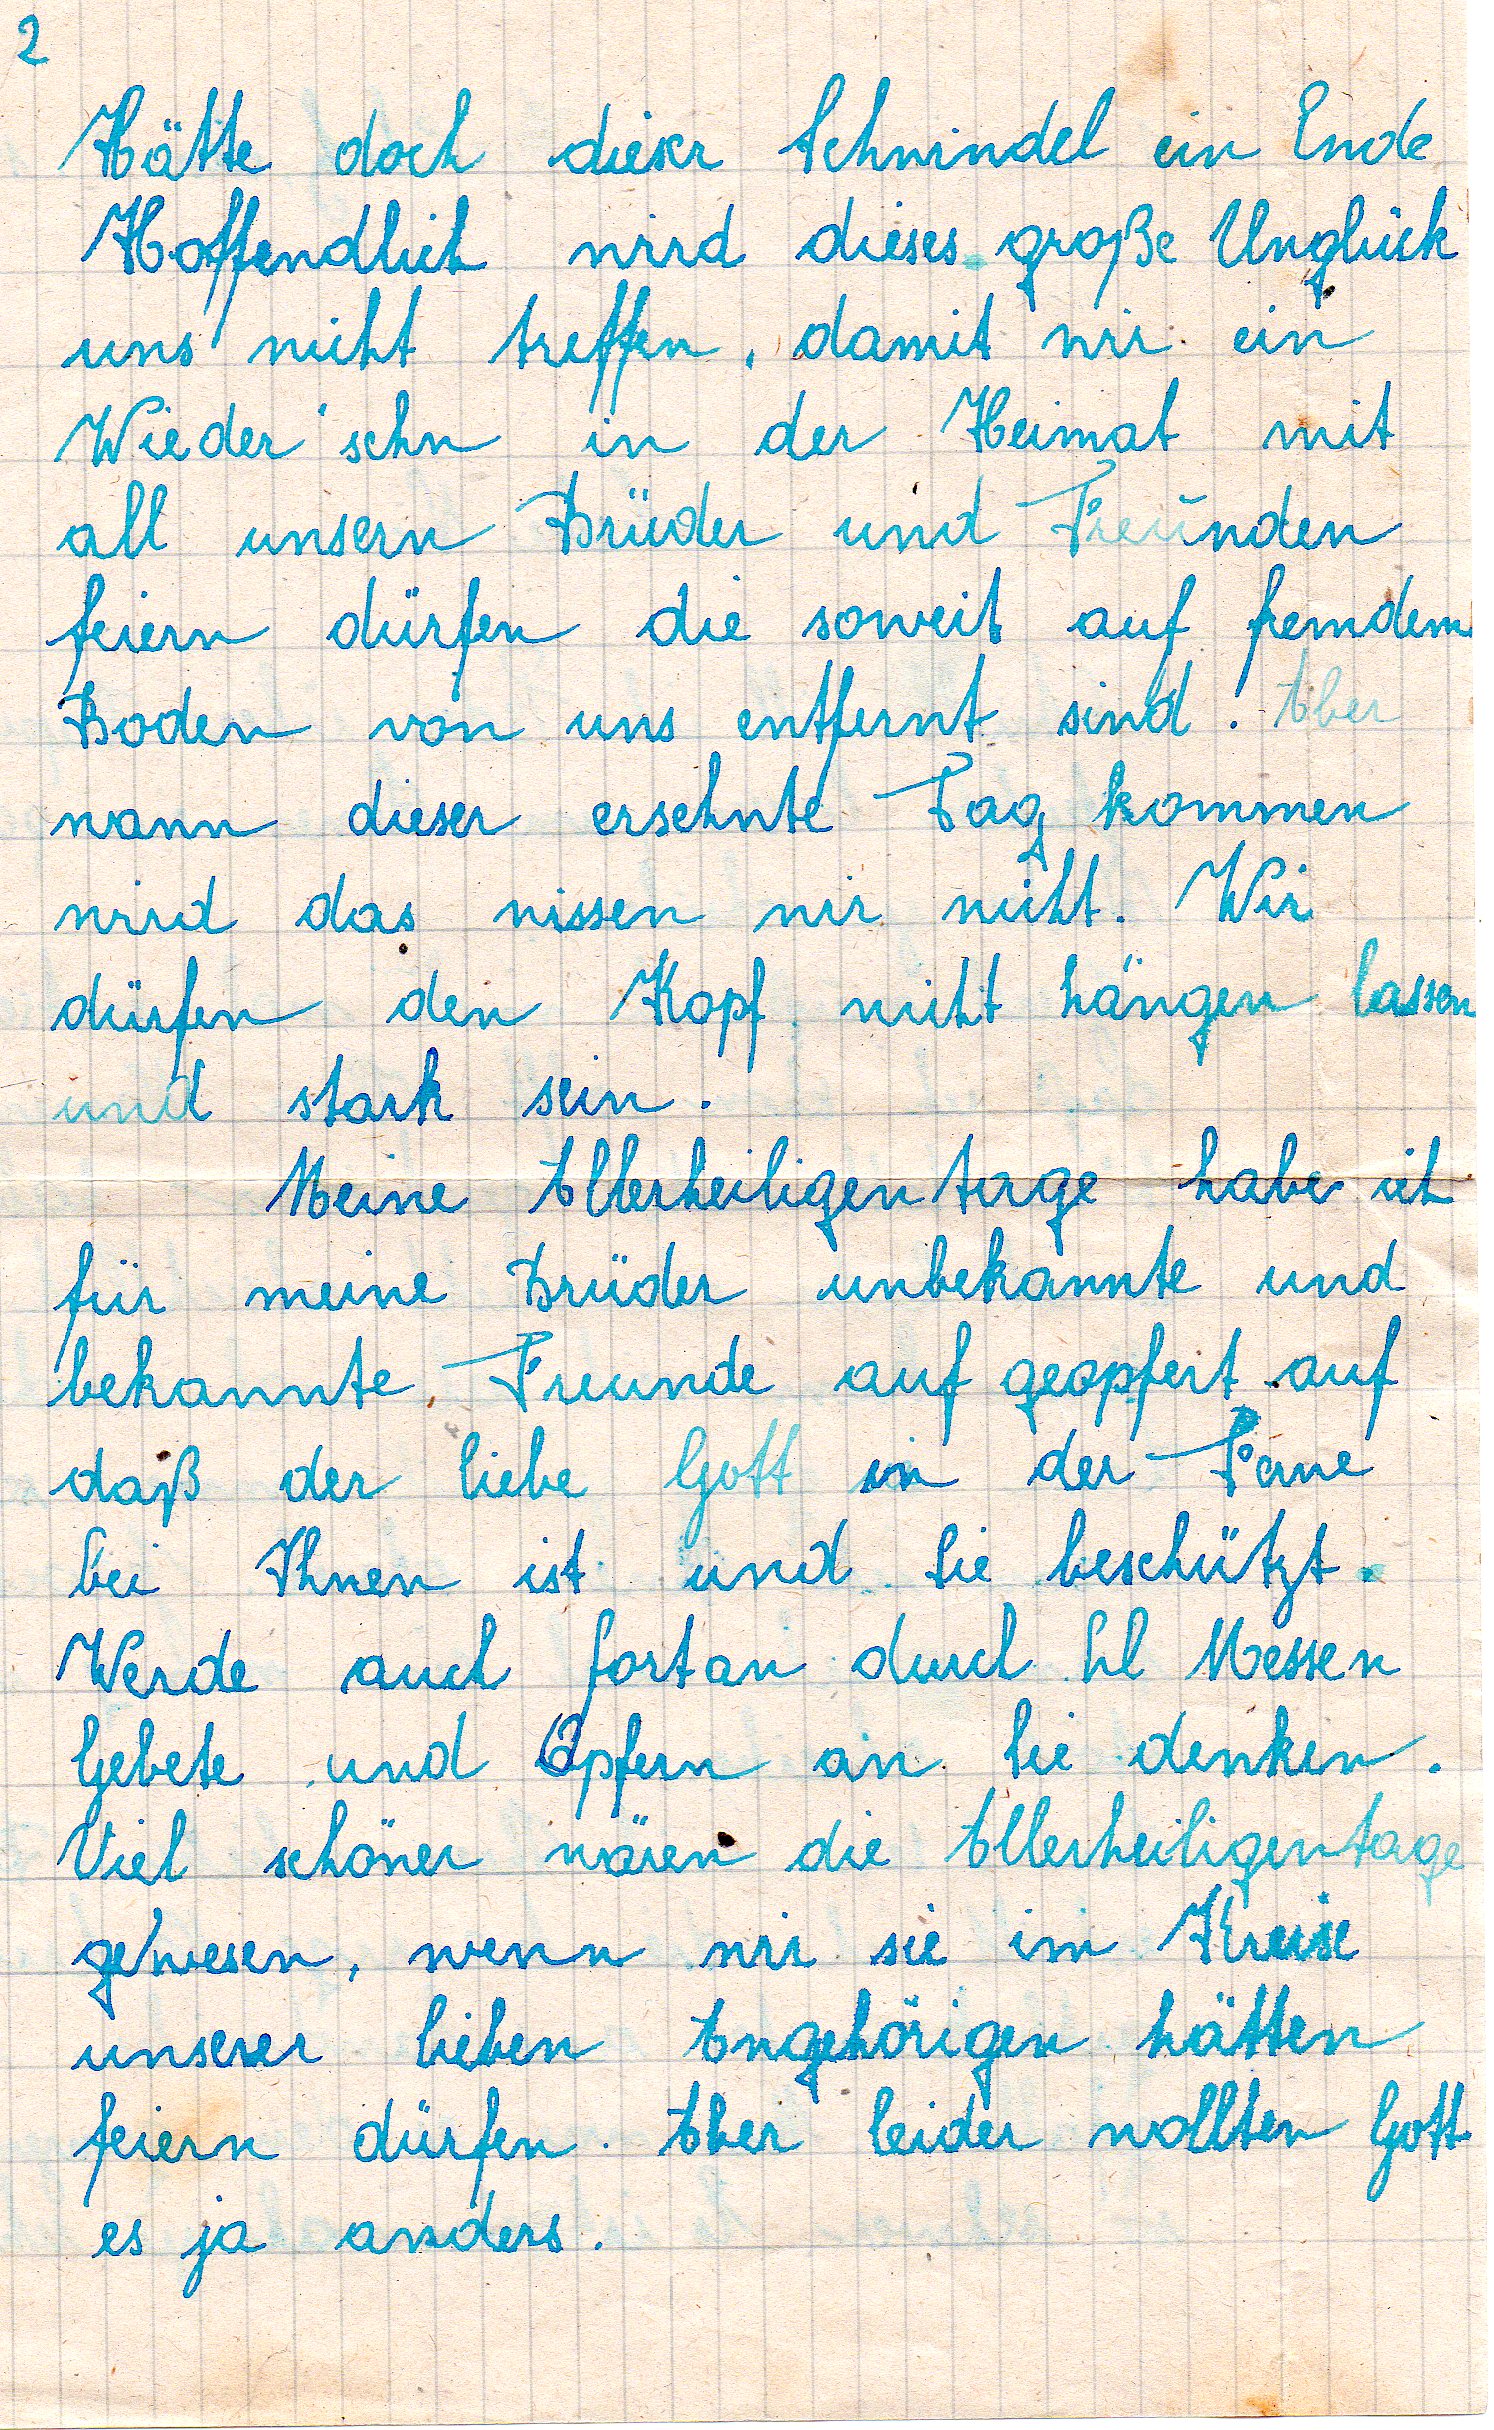 2
Hätte doch dieser Schwindel ein Ende
Hoffendlich wird dieses große Unglück
uns nicht treffen, damit wir ein
Wieder'sehn in der Heimat mit
all unsern Brüder und Freunden
feiern dürfen die soweit auf fremdem
Boden von uns entfernt sind. Aber
wann dieser ersehnte Tag kommen
wird das wissen wir nicht. Wir
dürfen den Kopf nicht hängen lassen
und stark sein.
Meine Allerheiligentage habe ich
für meine Brüder unbekannte und
bekannte Freunde auf geopfert auf
daß der liebe Gott in der Ferne
bei Ihnen ist und Sie beschützt.
Werde auch fortan durch hl Messen
Gebete und Opfern an Sie denken.
Viel schöner wären die Allerheiligentage
gewesen, wenn wir sie im Kreise
unserer lieben Angehörigen hätten
feiern dürfen. Aber leider wollten Gott
es ja anders.